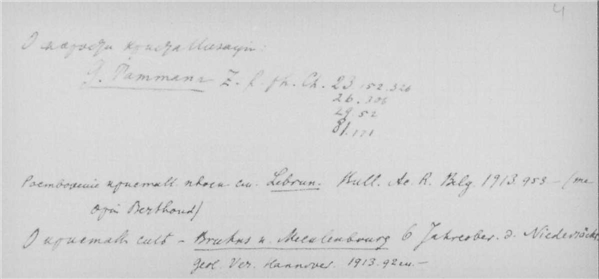 4
О скорости кристаллизации:
G. Tammann Z. f. ph. Ch. 23.152.326
26.306
29.52
81.171
Растворение кристалл. см. Lebrun. Bull. Ac. R. Belg. 1913. 953 — (те
ория Berthoud)
О кристалл. силъ — Bruhns u. Mecklenbourg 6 Jahresber. d. Niedersächs.
geol. Ver. Hannover. 1913. 92 —